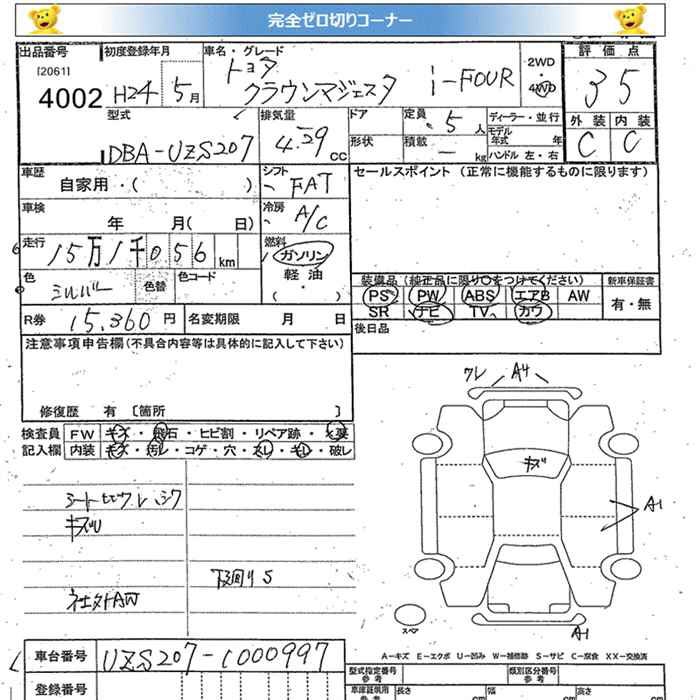 完全ゼロ切りコーナー
出品番号 初度登録年月 車名・グレード 2WD・4WD 評価点
[2061]
4002 H24 5月 トヨタ クラウンマジェスタ i-FOUR 35
型式 排気量 ドア 定員 5人 ディーラー・並行 外装 内装
モデル年式 年
DBA-UZS207 4.29cc 形状 積載 ー kg ハンドル 左・右 C C
車歴 シフト セールスポイント (正常に機能するものに限ります)
自家用・( ) FAT
車検 冷房
年 月( 日) A/C
走行 燃料
15万1千056km ガソリン
色 シルバー 色替 色コード 軽油
・
( )
装備品 (純正品に限り○をつけてください) 新車保証書
PS PW ABS エアB AW 有・無
SR ナビ TV カワ
R券 15,360円 名変期限 月 日 後日品
注意事項申告欄 (不具合内容等は具体的に記入して下さい)
修復歴 有 [箇所 ]
検査員 FW キズ・飛石・ヒビ割・リペア跡・交換
記入欄 内装 キズ・汚レ・コゲ・穴・スレ・キレ・破レ
ワレ A4
キズ
A1
シート
キズU
下廻りS
社外AW
スペア
A1
A-キズ E-エクボ U-凹み W-補修跡 S-サビ C-腐食 XX-交換済
車台番号 UZS207-1000997 型式指定番号 参考 類別区分番号 参考
登録番号 車庫証明用 参考 長さ cm 幅 cm 高さ cm